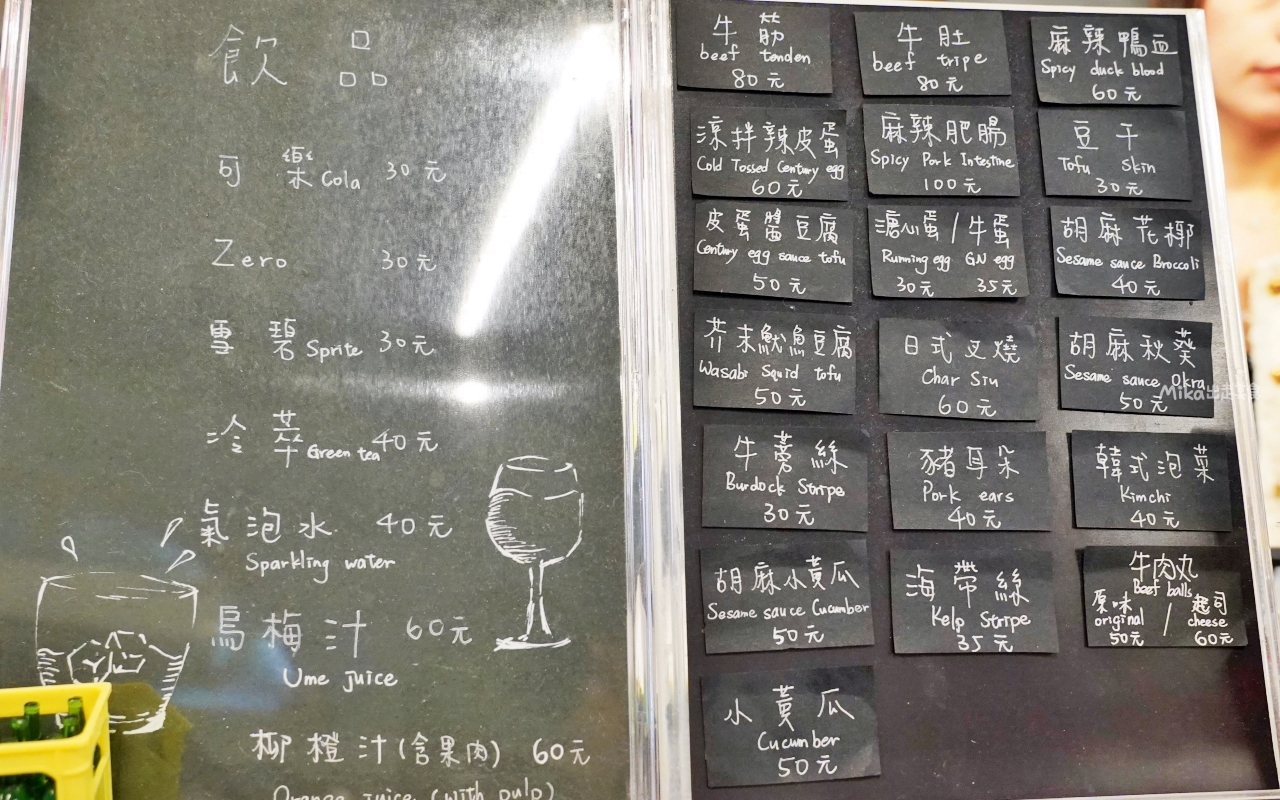 飲品
可樂 Cola 30元
Zero 30元
雪碧 Sprite 30元
冷萃 Green tea 40元
氣泡水 40元
Sparkling water
烏梅汁 60元
Ume juice
柳橙汁(含果肉) 60元
Orange juice (with pulp)
牛筋
beef tenden
80元
牛肚
beef tripe
80元
麻辣鴨血
Spicy duck blood
60元
涼拌辣皮蛋
Cold Tossed Century egg
60元
麻辣肥腸
Spicy Pork Intestine
100元
豆干
Tofu Skin
30元
皮蛋醬豆腐
Century egg sauce tofu
50元
溏心蛋/牛蛋
Running egg GN egg
30元 35元
胡麻花椰
Sesame sauce Broccoli
40元
芥末魷魚豆腐
Wasabi Squid tofu
50元
日式叉燒
Char Siu
60元
胡麻秋葵
Sesame sauce Okra
50元
牛蒡絲
Burdock Stripe
30元
豬耳朵
Pork ears
40元
韓式泡菜
Kimchi
40元
胡麻小黃瓜
Sesame sauce Cucumber
50元
海帶絲
Kelp Stripe
35元
牛肉丸
Beef balls
原味 / 起司
original cheese
50元 60元
小黃瓜
Cucumber
50元